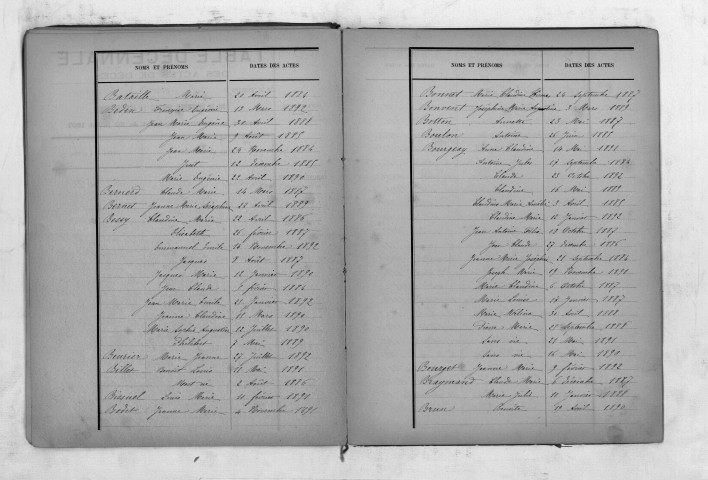 NOMS ET PRÉNOMS DATES DES ACTES
Bataille Marie 21 Avril 1884
Bedin Françoise Eugénie 13 Mars 1892
Jean Marie Eugène 30 Avril 1888
Jean Marie 9 Août 1885
Jean Marie 24 Novembre 1884
Just 12 Décembre 1885
Marie Eugénie 22 Avril 1890
Bernard Claude Marie 14 Mars 1887
Bernet Jeanne Marie Séraphine 22 Avril
Bessy Claudine Marie 22 Avril 1886
Elisabeth 25 février 1887
Emmanuel Emile 16 Novembre 1892
Jacques 2 Août 1887
Jacques Marie 12 Janvier 1890
Jean Claude 7 février 1884
Jean Marie Emile 21 Janvier 1892
Jeanne Claudine 15 Mars 1890
Marie Augustine 12 Juillet 1890
Philibert 7 Mai 1889
Beurier Marie Jeanne 27 Juillet 1892
Billet Benoit Louis 18 Mai 1891
Mort né 2 Août 1886
Louis Marie 11 février 1891
Bodet Jeanne Marie 4 Novembre 1891
NOMS ET PRÉNOMS DATES DES ACTES
Bonnet Marie Claudine 24 Septembre 1887
Bouvent Joséphine Marie 3 Mars 1889
Botton Annette 23 Mai 1887
Boulon Antoine 26 Juin 1885
Bourgeay Anne Claudine 14 Mai 1891
Antoine Jules 17 Septembre 1884
Claude 23 Octobre 1892
Claudine 16 Mai 1889
Claudine Marie 3 Avril 1885
Claudine Marie 12 Janvier 1892
Jean Antoine 18 Octobre 1887
Jean Claude 27 Décembre 1886
Jeanne Marie Joséphine 28 Septembre 1884
Joseph Marie 29 Novembre 1890
Marie Claudine 6 Octobre 1887
Marie Louise 16 Janvier 1887
Marie 30 Avril 1888
Marie 27 Septembre 1888
Sans vie 21 Mai 1891
Sans vie 16 Mai 1890
Bourget Jeanne Marie 9 février 1892
Braymand Claude Marie 6 Décembre 1887
Marie Julie 11 Janvier 1888
Brun 19 Avril 1890